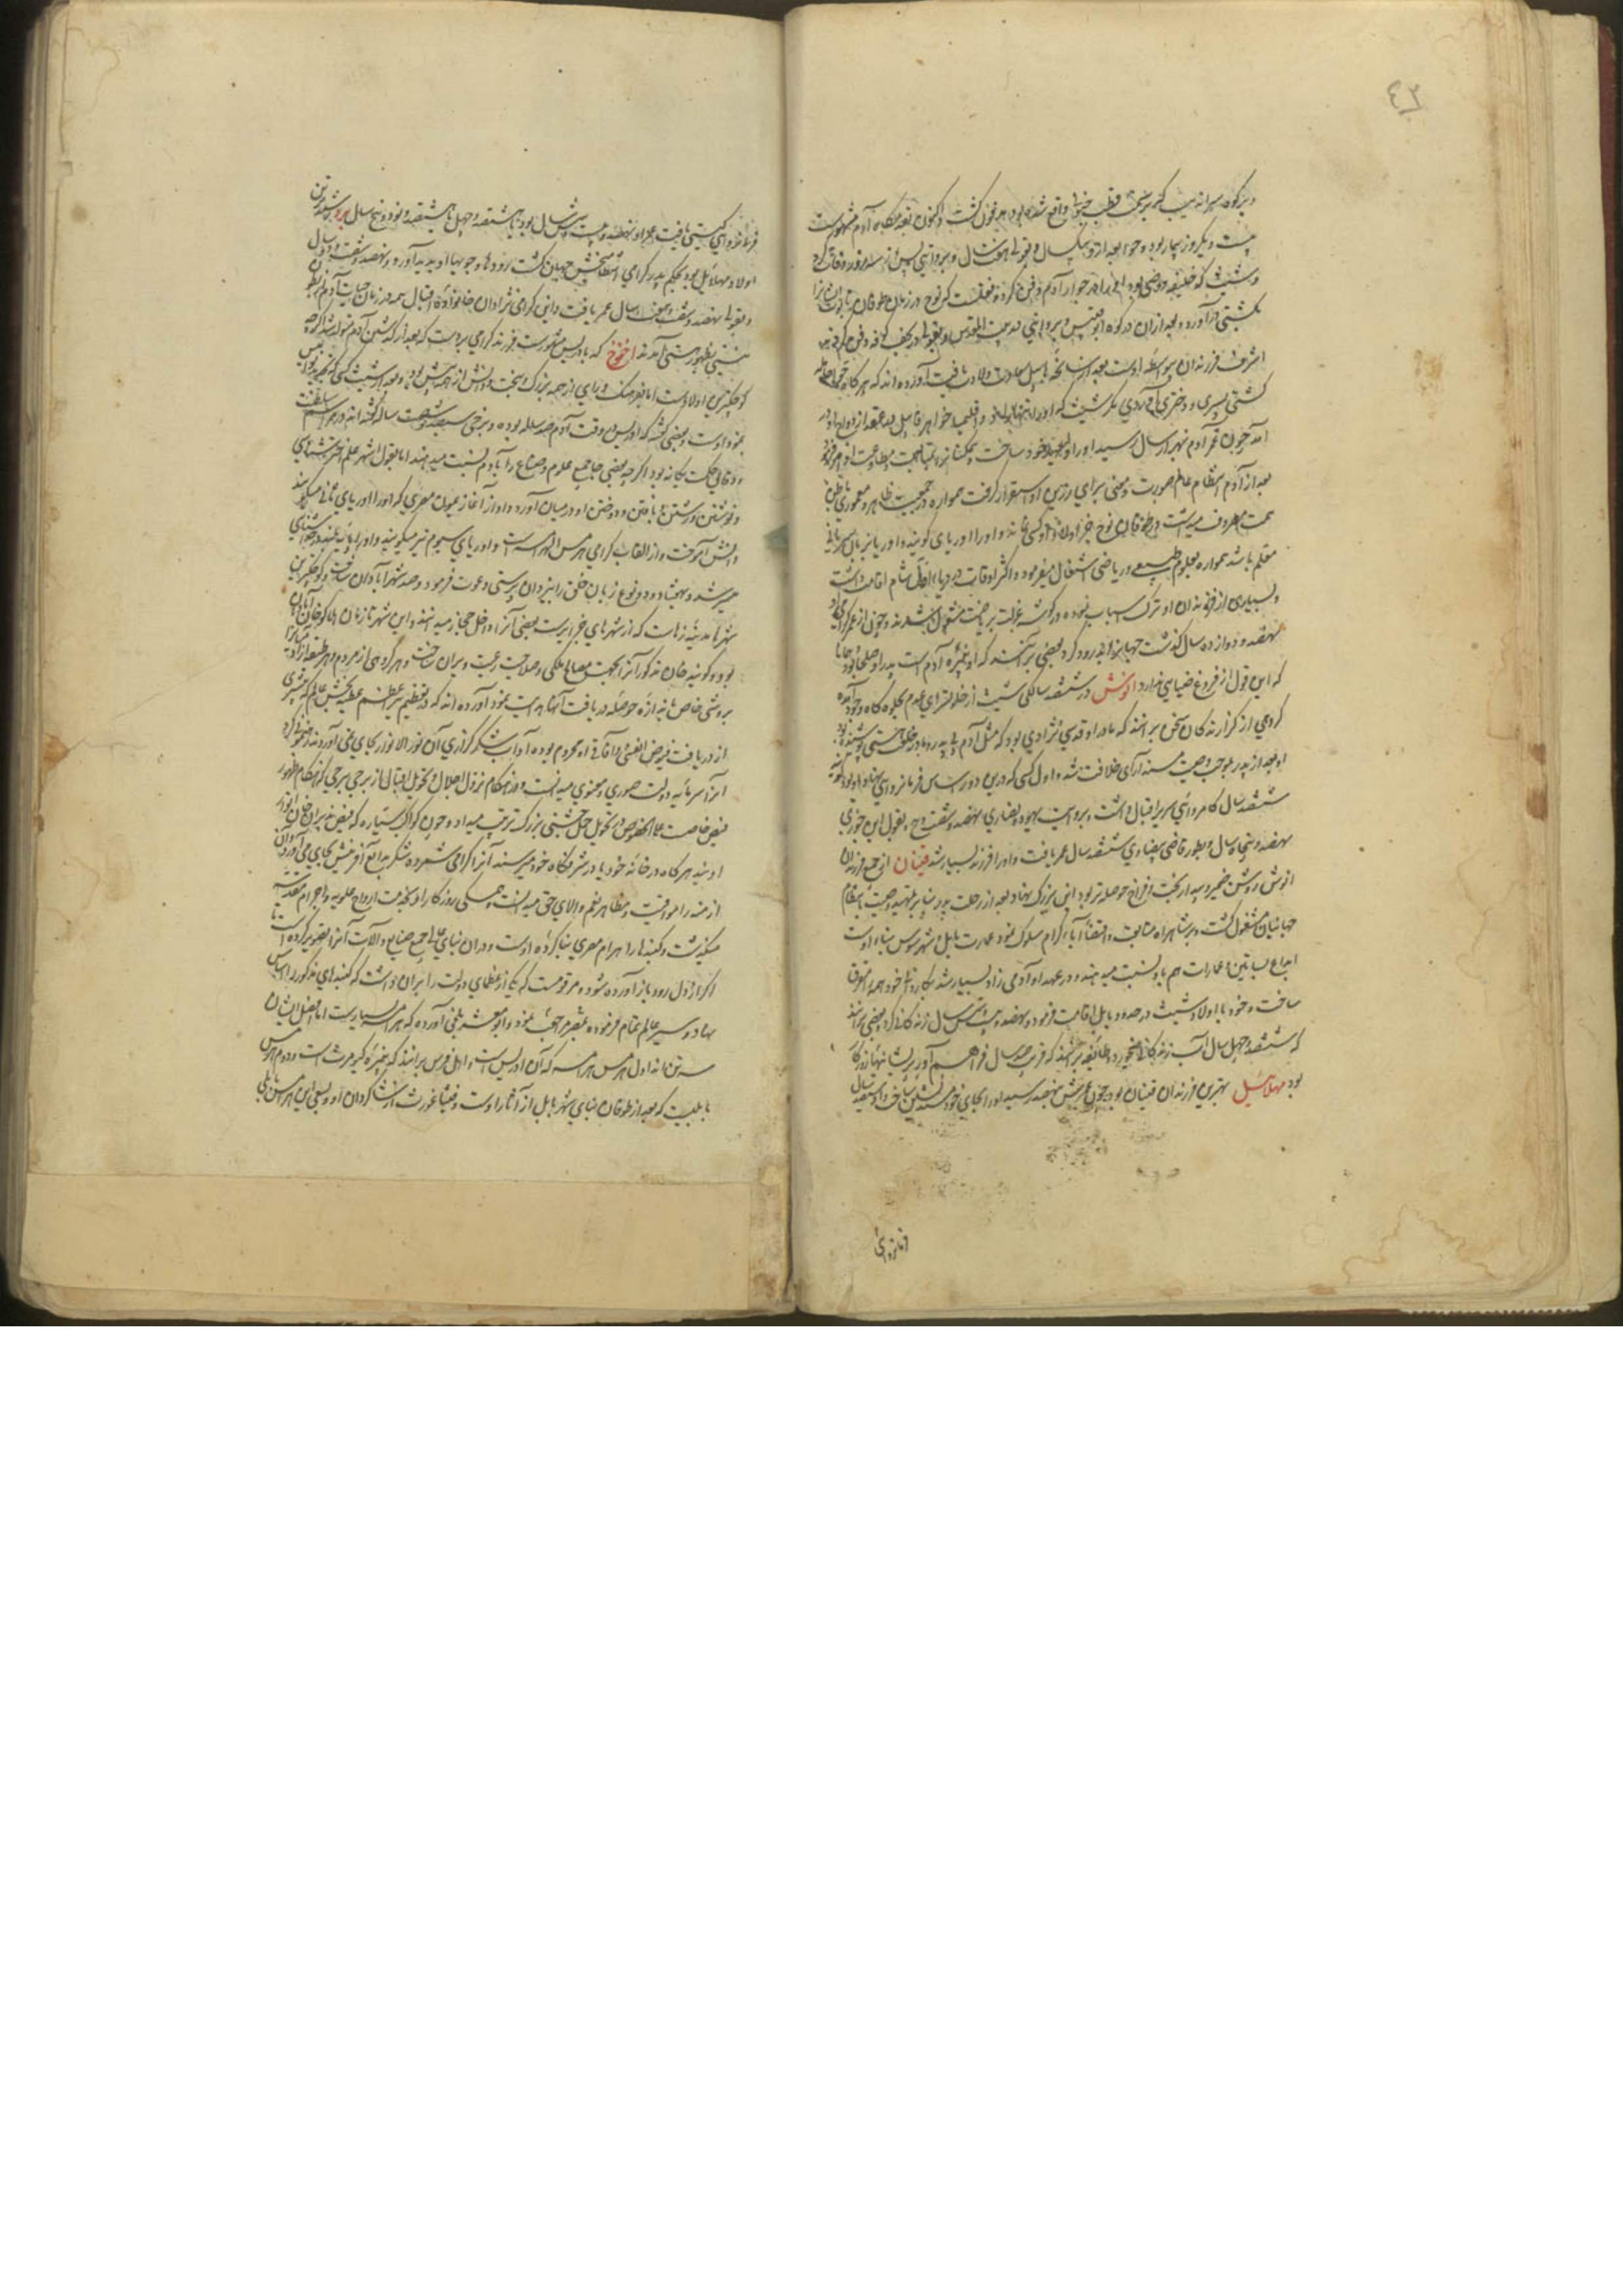 ۴۳
و بر کوه سراندیب که بر سمت قطب جنوبی واقع شده بود مدفون گشت و اکنون بقدمگاه آدم مشهورست
بیست و یکروز بیمار بود و حوا بعد از و بیکسال و بقولی هفت سال و بروایتی پس از سه روز وفات کرد
و شیث که خلیفه و وصی بود او را در جوار آدم دفن کرد و منقولست که نوح در زمان طوفان تابوت ایشانرا
بکشتی درآورد و بعد از آن در کوه ابو قبیس و بروایتی در بیت المقدس و بقولی در نجف کوفه دفن کرد شیث
اشرف فرزندان بیواسطه اوست بعد از سانحه هابیل سعادت ولادت یافت آورده اند که هرگاه حوا حامله
گشتی پسری و دختری آوردی مگر شیث که او را تنها زاد و اقلیما خواهر قابیل بعقد ازدواج او در
آمد چون عمر آدم بهزار سال رسید او را ولیعهد خود ساخت و همگنانرا بمتابعت و مطاوعت او امر فرمود
بعد از آدم انتظام عالم صورت و معنی برای رزین او استقرار گرفت همواره در جمعیت ظاهر و معموری باطن
همت مصروف میداشت در طوفان نوح جز اولاد او کسی نماند و او را اوریای گویند و اوریا بزبان سریانی
معلم باشد همواره بعلوم طبیعی و ریاضی اشتغال میفرمود و اکثر اوقات در دیار شام اقامت داشت
و بسیاری از فرزندان او ترک اسباب نموده در گوشه عزلت بریاضت مشغول شدند و چون از عمر گرامی او
نهصد و دوازده سال گذشت جهانرا بدرود کرد بعضی برآنند که او نبیره آدم است پدر او صلحا بود همانا
که این قول از فروغ ضیا بی ندارد انوش در ششصد سالگی شیث از خلوتسرای عدم بجلوه گاه وجود آمده
گروهی از گزارندگان سخن برانند که مادر او قدسی نژادی بود که مثل آدم بی پدر و مادر خلعت هستی پوشیده بود
او بعد از پدر بموجب وصیت مسند آرای خلافت شد و اول کسی که درین دور اساس فرمانروائی نهاد او بود گویند
ششصد سال کامروائی سریر اقبال داشت و بروایت یهود و نصاری نهصد و شصت و پنج و بقول ابن جوزی
نهصد و پنجاه سال و بطور قاضی بیضاوی ششصد سال عمر یافت و او را فرزند بسیار شد قینان از جمیع فرزندان
انوش روشن ضمیر و بیدار بخت و فراخ حوصله تر بود این بزرگ نهاد بعد از رحلت پدر بنابر تمهید وصیت بانتظام
جهانیان مشغول گشت و بر شاهراه متابعت و اقتفاء آباء کرام سلوک نمود عمارت بابل و شهر سوس بناء اوست
ابداع بساتین و عمارات هم باو نسبت میدهند و در عهد او آدمی زاد بسیار شد بکاردانی خود همه را متفرق
ساخت و خود با اولاد شیث در حدود بابل اقامت فرمود و نهصد و بیست و شش سال زندگانی کرد و بعضی برآنند
که ششصد و چهل سال آب زندگانی میخورد و طائفه برآنند که قریب صد سال فراهم آور پریشانیهای روزگار
بود مهلائیل بهترین فرزندان قینان بود چون عمرش بنهصد رسید او را بجای خود مسند نشین ساخت و او هشتصد سال
فرمانروائی
فرمانروائی گیتی یافت عمر او نهصد و بیست و شش سال بود یا هشتصد و چهل یا هشتصد و نود و پنج سال برد رشیدترین
اولاد مهلائیل بود بحکم پدر گرامی انتظام بخش جهان گشت رودها و جویها او پدید آورد و نهصد و شصت و دو سال
و بقولی نهصد و شصت و هفت سال عمر یافت و این گرامی نژادان خانواده اقبال همه در زمان حیات آدم از بطون
نیستی بظهور هستی آمدند اخنوخ که بادریس مشهورست فرزند گرامی بردست که بعد از گذشتن آدم متولد شد اگرچه
کوچکترین اولادست اما بفرهنگ و رای از همه بزرگ و بخت و دانش از همه بیش بود و بعد از شیث کسی که بتجرید نفس
نمود اوست و بعضی گفته که ادریس در وقت آدم صد ساله بوده و برخی سیصد و شصت ساله گفته اند در مراسم سلطنت
و دقائق حکمت یگانه بود اگرچه بعضی جامع علوم و صنائع را بآدم نسبت میدهند اما بقول اشهر علم اختر شناسی
و نوشتن و رشتن و بافتن و دوختن او در میان آورد و او از آغاثیمون مصری که او را اوریای ثانی میگویند
دانش آموخت و از القاب گرامی هرمس الهرامسه است و اوریای سیوم نیز میگویند و او را پایه بلند در خداشناسی
میسر شد و بهفتاد و دو نوع زبان خلق را بیزدان پرستی دعوت فرمود و صد شهر آبادان ساخت و کوچکترین
شهرها مدینه رهاست که از شهرهای جزایرست بعضی آنرا داخل حجاز میدانند و این شهر تا زمان هلاکو خان آبادان
بود و گویند خان مذکور آنرا بجهت مصالح ملکی و صلاح رعیت ویران ساخت و هر گروهی از مردم و هر طبقه از آدمیانرا
بروشی خاص باندازه حوصله دریافت آنها هدایت نمود آورده اند که در تعظیم نیر اعظم عطیه بخش عالم که بیشتری
از دریافت فیوض انفسی و آفاقی او محروم بوده آداب شکرگزاری آن نور الانوار بجای نمی آوردند رهنمونی کرد
و آنرا سرمایه دولت صوری و معنوی میدانست و در هنگام نزول اجلال و تحویل اقبال از برجی ببرجی که هنگام ظهور
فیض خاصست علی الخصوص در تحویل حمل جشنی بزرگ ترتیب میداد و چون کواکب سیاره که فیض پذیران خوان نوال
اویند هرگاه در خانه خود یا در شرفگاه خود میرسند آنرا گرامی شمرده شکر بدایع آفرینش بجای می آورد و آن
ازمنه را مواقیت و مظاهر نعم والای حق میدانست همگی روزگار او بخدمت ارواح علویه و اجرام مقدسه
میگذشت و گنبدها را اهرام مصری بنا کرده اوست و در آن بنای عالی جمیع صنایع و آلات آنرا تصویر کرده است تا
اگر از دل رود باز آورده شود و مرقومست که یکی از عظمای دولت را بران داشت که گنبدهای مذکور را اساس
نهاد و سیر عالم تمام فرموده بمصر مراجعت نمود و ابو معشر بلخی آورده که هرامسه بسیارست اما افضل ایشان
سه تن اند اول هرمس هرامسه که آن ادریس است و اهل فرس برانند که نبیره کیومرث است و دوم هرمس
بابلیست که بعد از طوفان بنای شهر بابل از آثار اوست و فیثاغورث از شاگردان او و بسعی این هرمس ثانی